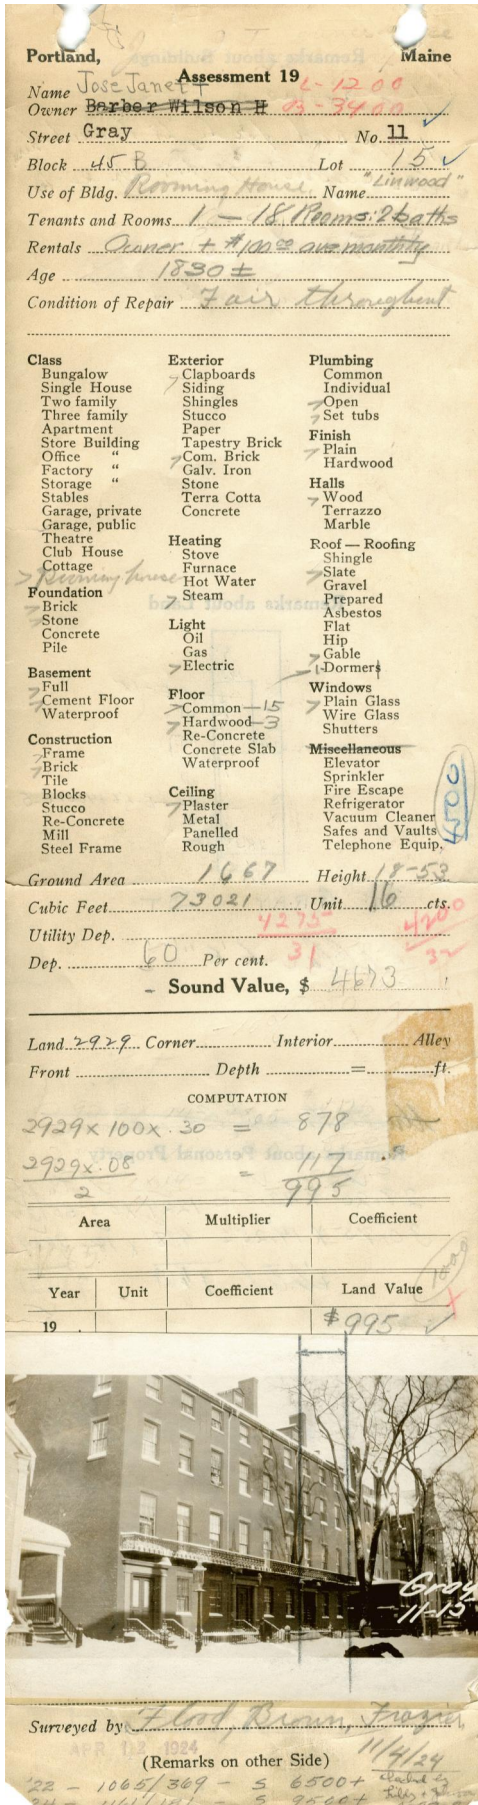 Portland, Maine
Assessment 19
Name Jose Janet T L-1200
Owner Barber Wilson H B-3400
Street Gray No. 11
Block 45 B Lot 15
Use of Bldg. Rooming House Name "Linwood"
Tenants and Rooms 1 — 18 Rooms: 2 baths
Rentals Owner + $100.00 ave monthly
Age 1830 ±
Condition of Repair Fair throughout
Class
Bungalow
Single House
Two family
Three family
Apartment
Store Building
Office "
Factory "
Storage "
Stables
Garage, private
Garage, public
Theatre
Club House
Cottage
Rooming house
Foundation
Brick
Stone
Concrete
Pile
Basement
Full
Cement Floor
Waterproof
Construction
Frame
Brick
Tile
Blocks
Stucco
Re-Concrete
Mill
Steel Frame
Exterior
Clapboards
Siding
Shingles
Stucco
Paper
Tapestry Brick
Com. Brick
Galv. Iron
Stone
Terra Cotta
Concrete
Heating
Stove
Furnace
Hot Water
Steam
Light
Oil
Gas
Electric
Floor
Common — 15
Hardwood — 3
Re-Concrete
Concrete Slab
Waterproof
Ceiling
Plaster
Metal
Panelled
Rough
Plumbing
Common
Individual
Open
Set tubs
Finish
Plain
Hardwood
Halls
Wood
Terrazzo
Marble
Roof — Roofing
Shingle
Slate
Gravel
Prepared
Asbestos
Flat
Hip
Gable
1 Dormers
Windows
Plain Glass
Wire Glass
Shutters
Miscellaneous
Elevator
Sprinkler
Fire Escape
Refrigerator
Vacuum Cleaner
Safes and Vaults
Telephone Equip.
4500
Ground Area 1667 Height 18-53
Cubic Feet 73021 Unit 16 cts.
Utility Dep. 4275 4200
31 32
Dep. 60 Per cent.
Sound Value, $ 4673
Land 2929 Corner Interior Alley
Front Depth = ft.
COMPUTATION
2929 x 100 x .30 = 878
2929 x .08 = 117
2 995
Area Multiplier Coefficient
Year Unit Coefficient Land Value
19 $995
Gray
11-13
Surveyed by Flood, Brown, Frazier
APR 12 1924
11/4/24
(Remarks on other Side)
'22 - 1065/369 - S 6500+